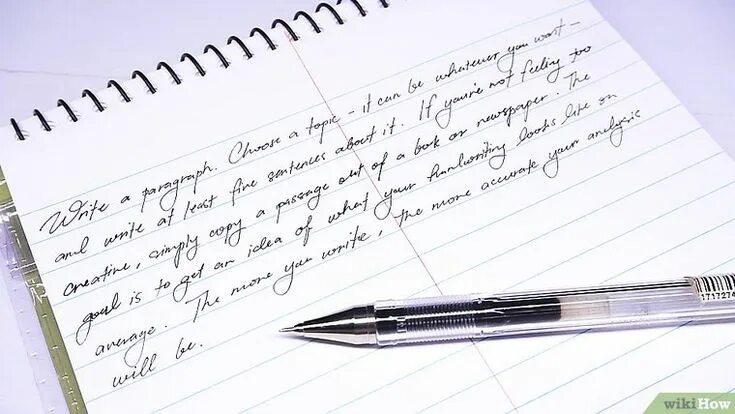 Write a paragraph. Choose a topic - it can be whatever you want -
and write at least five sentences about it. If you're not feeling too
creative, simply copy a passage out of a book or newspaper. The
goal is to get an idea of what your handwriting looks like on
average. The more you write, the more accurate your analysis
will be.
1717274
wikiHow